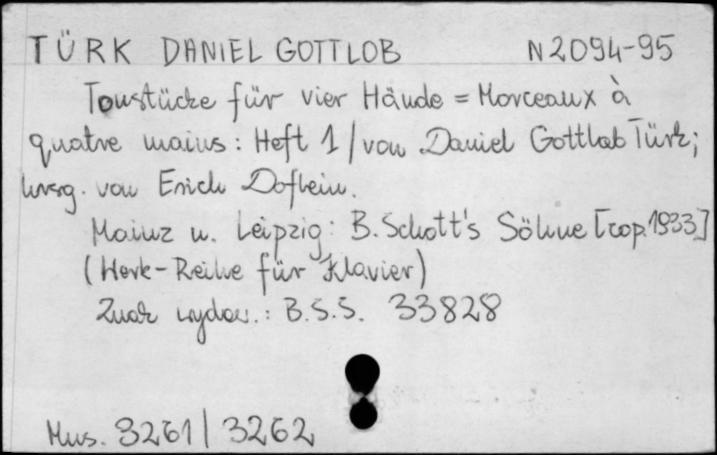 TÜRK DANIEL GOTTLOB N2094-95
Tonstücke für vier Hände = Morceaux à
quatre mains: Heft 1 / von Daniel Gottlob Türk;
hrsg. von Erich Doflein.
Mainz u. Leipzig: B. Schott's Söhne [cop. 1933]
(Werk-Reihe für Klavier)
Znak wydaw.: B.S.S. 33828
Mus. 3261 | 3262